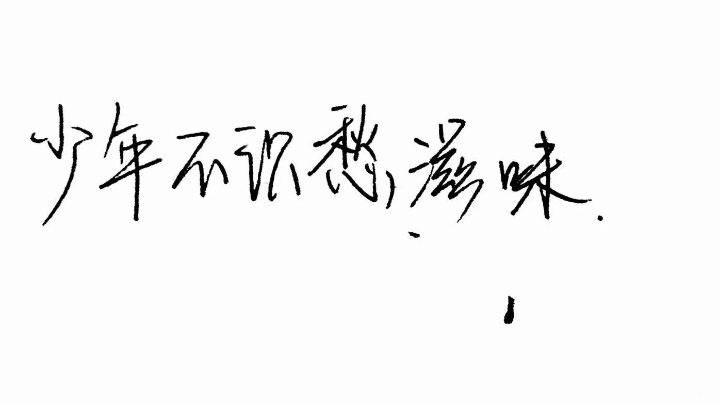 少年不识愁,滋味.